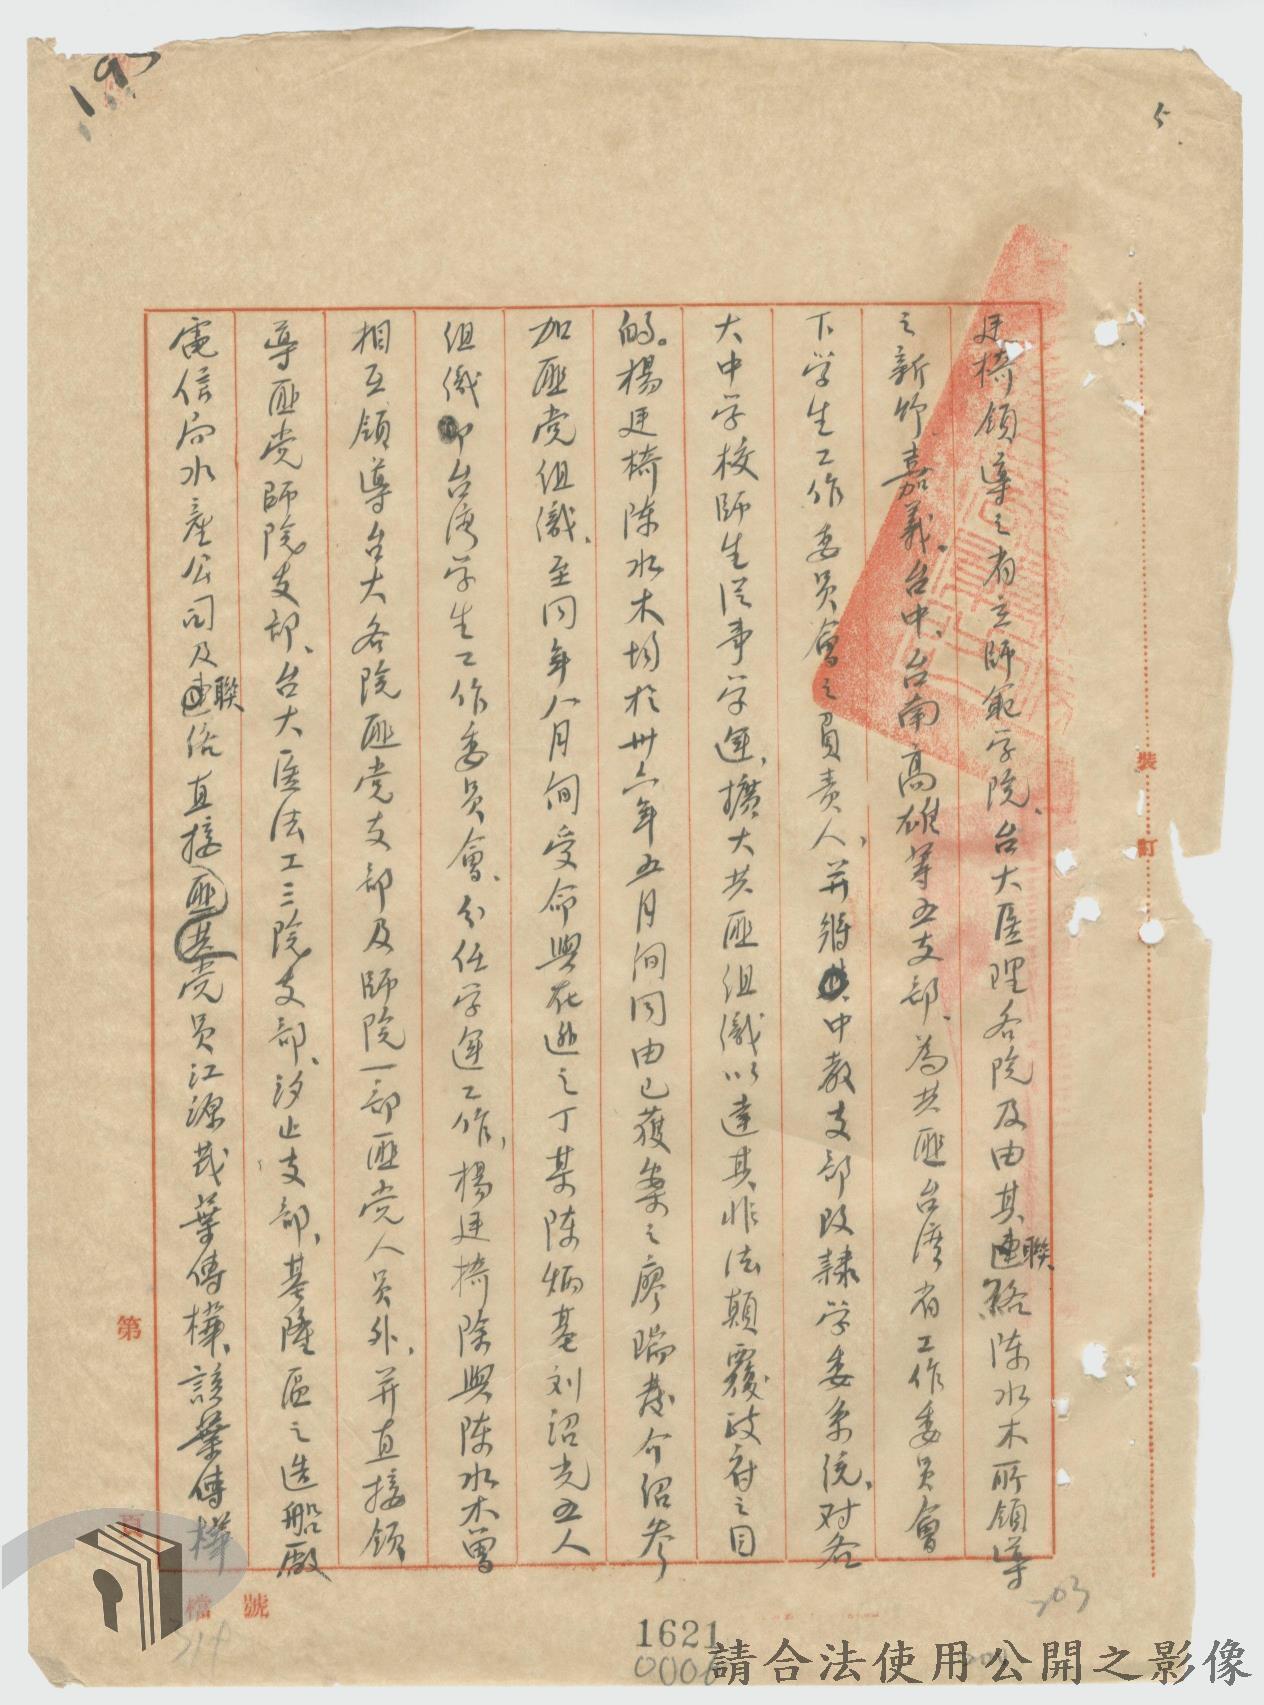 5
廷椅領導之省立師範学院、台大医理各院及由其聯絡陈水木所領導
之新竹、嘉義、台中、台南高雄等五支部、為共匪台湾省工作委员會
下学生工作委员會之負責人、并將中教支部改隷学委系統、对各
大中学校師生從事学運、擴大共匪组織以達其非法顛覆政府之目
的。楊廷椅陈水木均於卅六年五月间同由已獲案之廖瑞發介绍参
加匪党组織、至同年八月间受命與在逃之丁某陈炳基刘沼光五人
组織台湾学生工作委员會、分任学運工作、楊廷椅除與陈水木曾
相互領導台大各院匪党支部及師院一部匪党人员外、并直接領
導匪党師院支部、台大医法工三院支部、汐止支部、基隆區之造船厰
電信局水產公司及聯络直接匪党员江源茂葉傳樺、該葉傳樺
裝
訂
第
頁
檔號
203
1621
請合法使用公開之影像